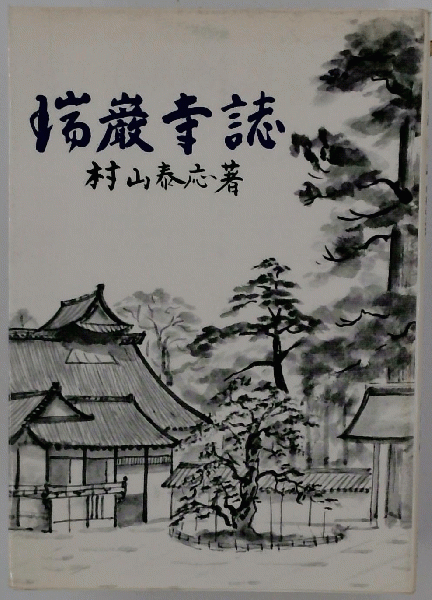 瑞巌寺誌
村山泰応著